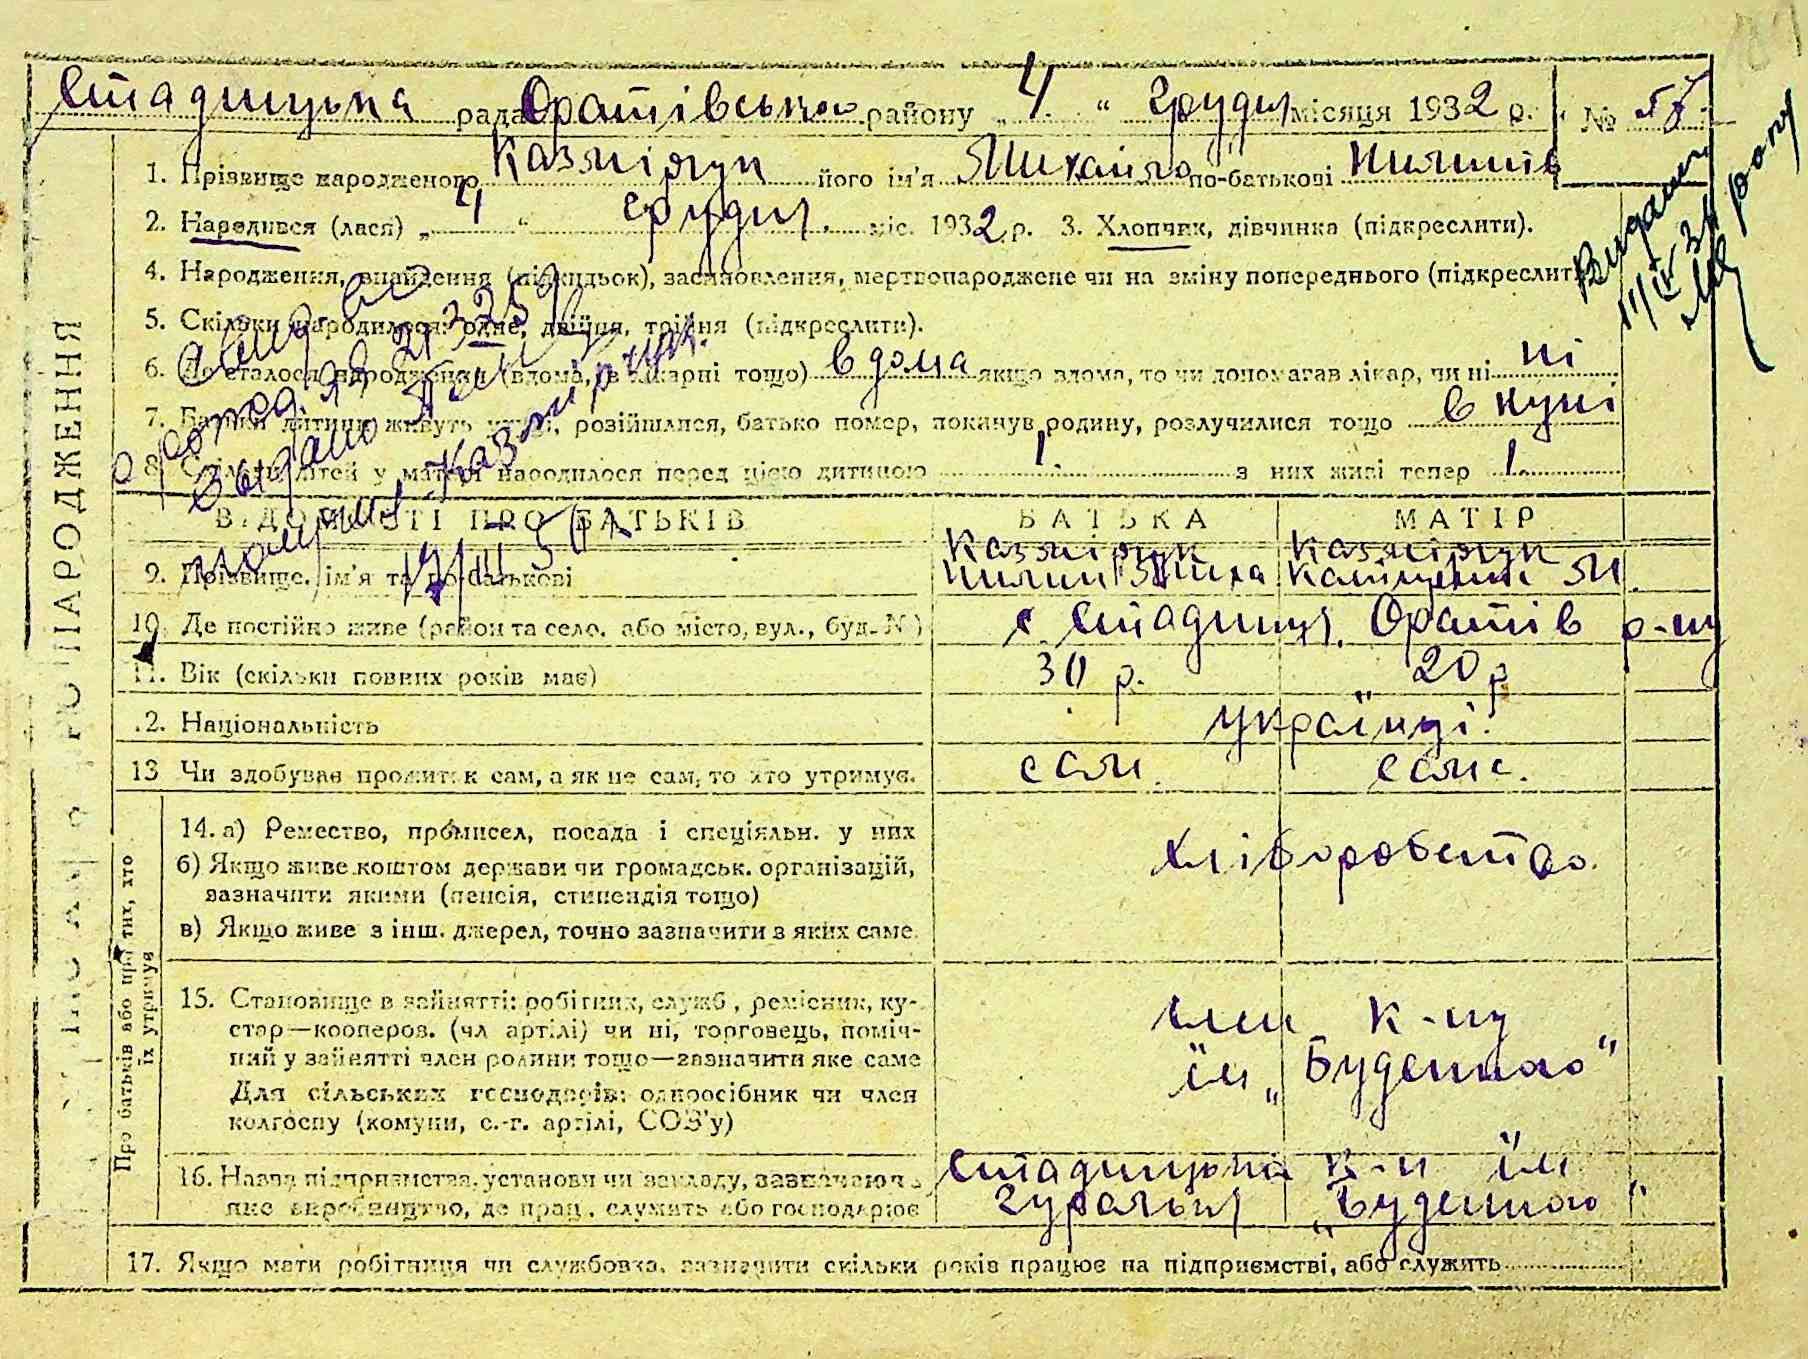 Стадницька рада Оратівського району „ 4 “ грудня місяця 1932 р. № 57
1. Прізвище народженого Казмірчук його ім'я Михайло по-батькові
2. Народився (лася) „ 4 “ грудня міс. 1932 р. 3. Хлопчик, дівчинка (підкреслити).
4. Народження, знайдення (підкидьок), засиновлення, мертвонароджене чи на зміну попереднього (підкреслит
5. Скільки народилося: одне, двійня, трійня (підкреслити).
6. Де сталося народження (вдома, в лікарні тощо) в дома якщо вдома, то чи допомагав лікар, чи ні ні
7. Батьки дитини живуть укупі, розійшлися, батько помер, покинув родину, розлучилися тощо в купі
8. Скільки дітей у матері народилося перед цією дитиною 1. з них живі тепер 1.
Видано
року
о рожд.
Выдано
Казмирчук
ВІДОМОСТІ ПРО БАТЬКІВ БАТЬКА МАТІР
9. Прізвище, ім'я та по-батькові Казмірчук Казмірчук
10. Де постійно живе (район та село, або місто, вул., буд. №) с Стадниця, Оратів р-ну
11. Вік (скільки повних років має) 30 р. 20 р
12. Національність українці.
13 Чи здобуває прожиток сам, а як не сам, то хто утримує. сам. сама.
Про батьків або про тих, хто
їх утримує
14. а) Ремество, промисел, посада і спеціяльн. у них хліборобство.
б) Якщо живе коштом держави чи громадськ. організацій,
зазначити якими (пенсія, стипендія тощо)
в) Якщо живе з інш. джерел, точно зазначити з яких саме.
15. Становище в зайнятті: робітник, служб., ремісник, ку-
стар—кооперов. (чл артілі) чи ні, торговець, поміч-
ний у зайнятті член родини тощо—зазначити яке саме
Для сільських господарів: одноосібник чи член
колгоспу (комуни, с.-г. артілі, СОЗ'у)
член к-пу
ім „Буденного“
16. Назва підприємства, установи чи закладу, зазначаючи
яке виробництво, де прац., служить або господарює
Стадницька к-п ім
гуральня „Буденного“
17. Якщо мати робітниця чи службовка, зазначити скільки років працює на підприємстві, або служить